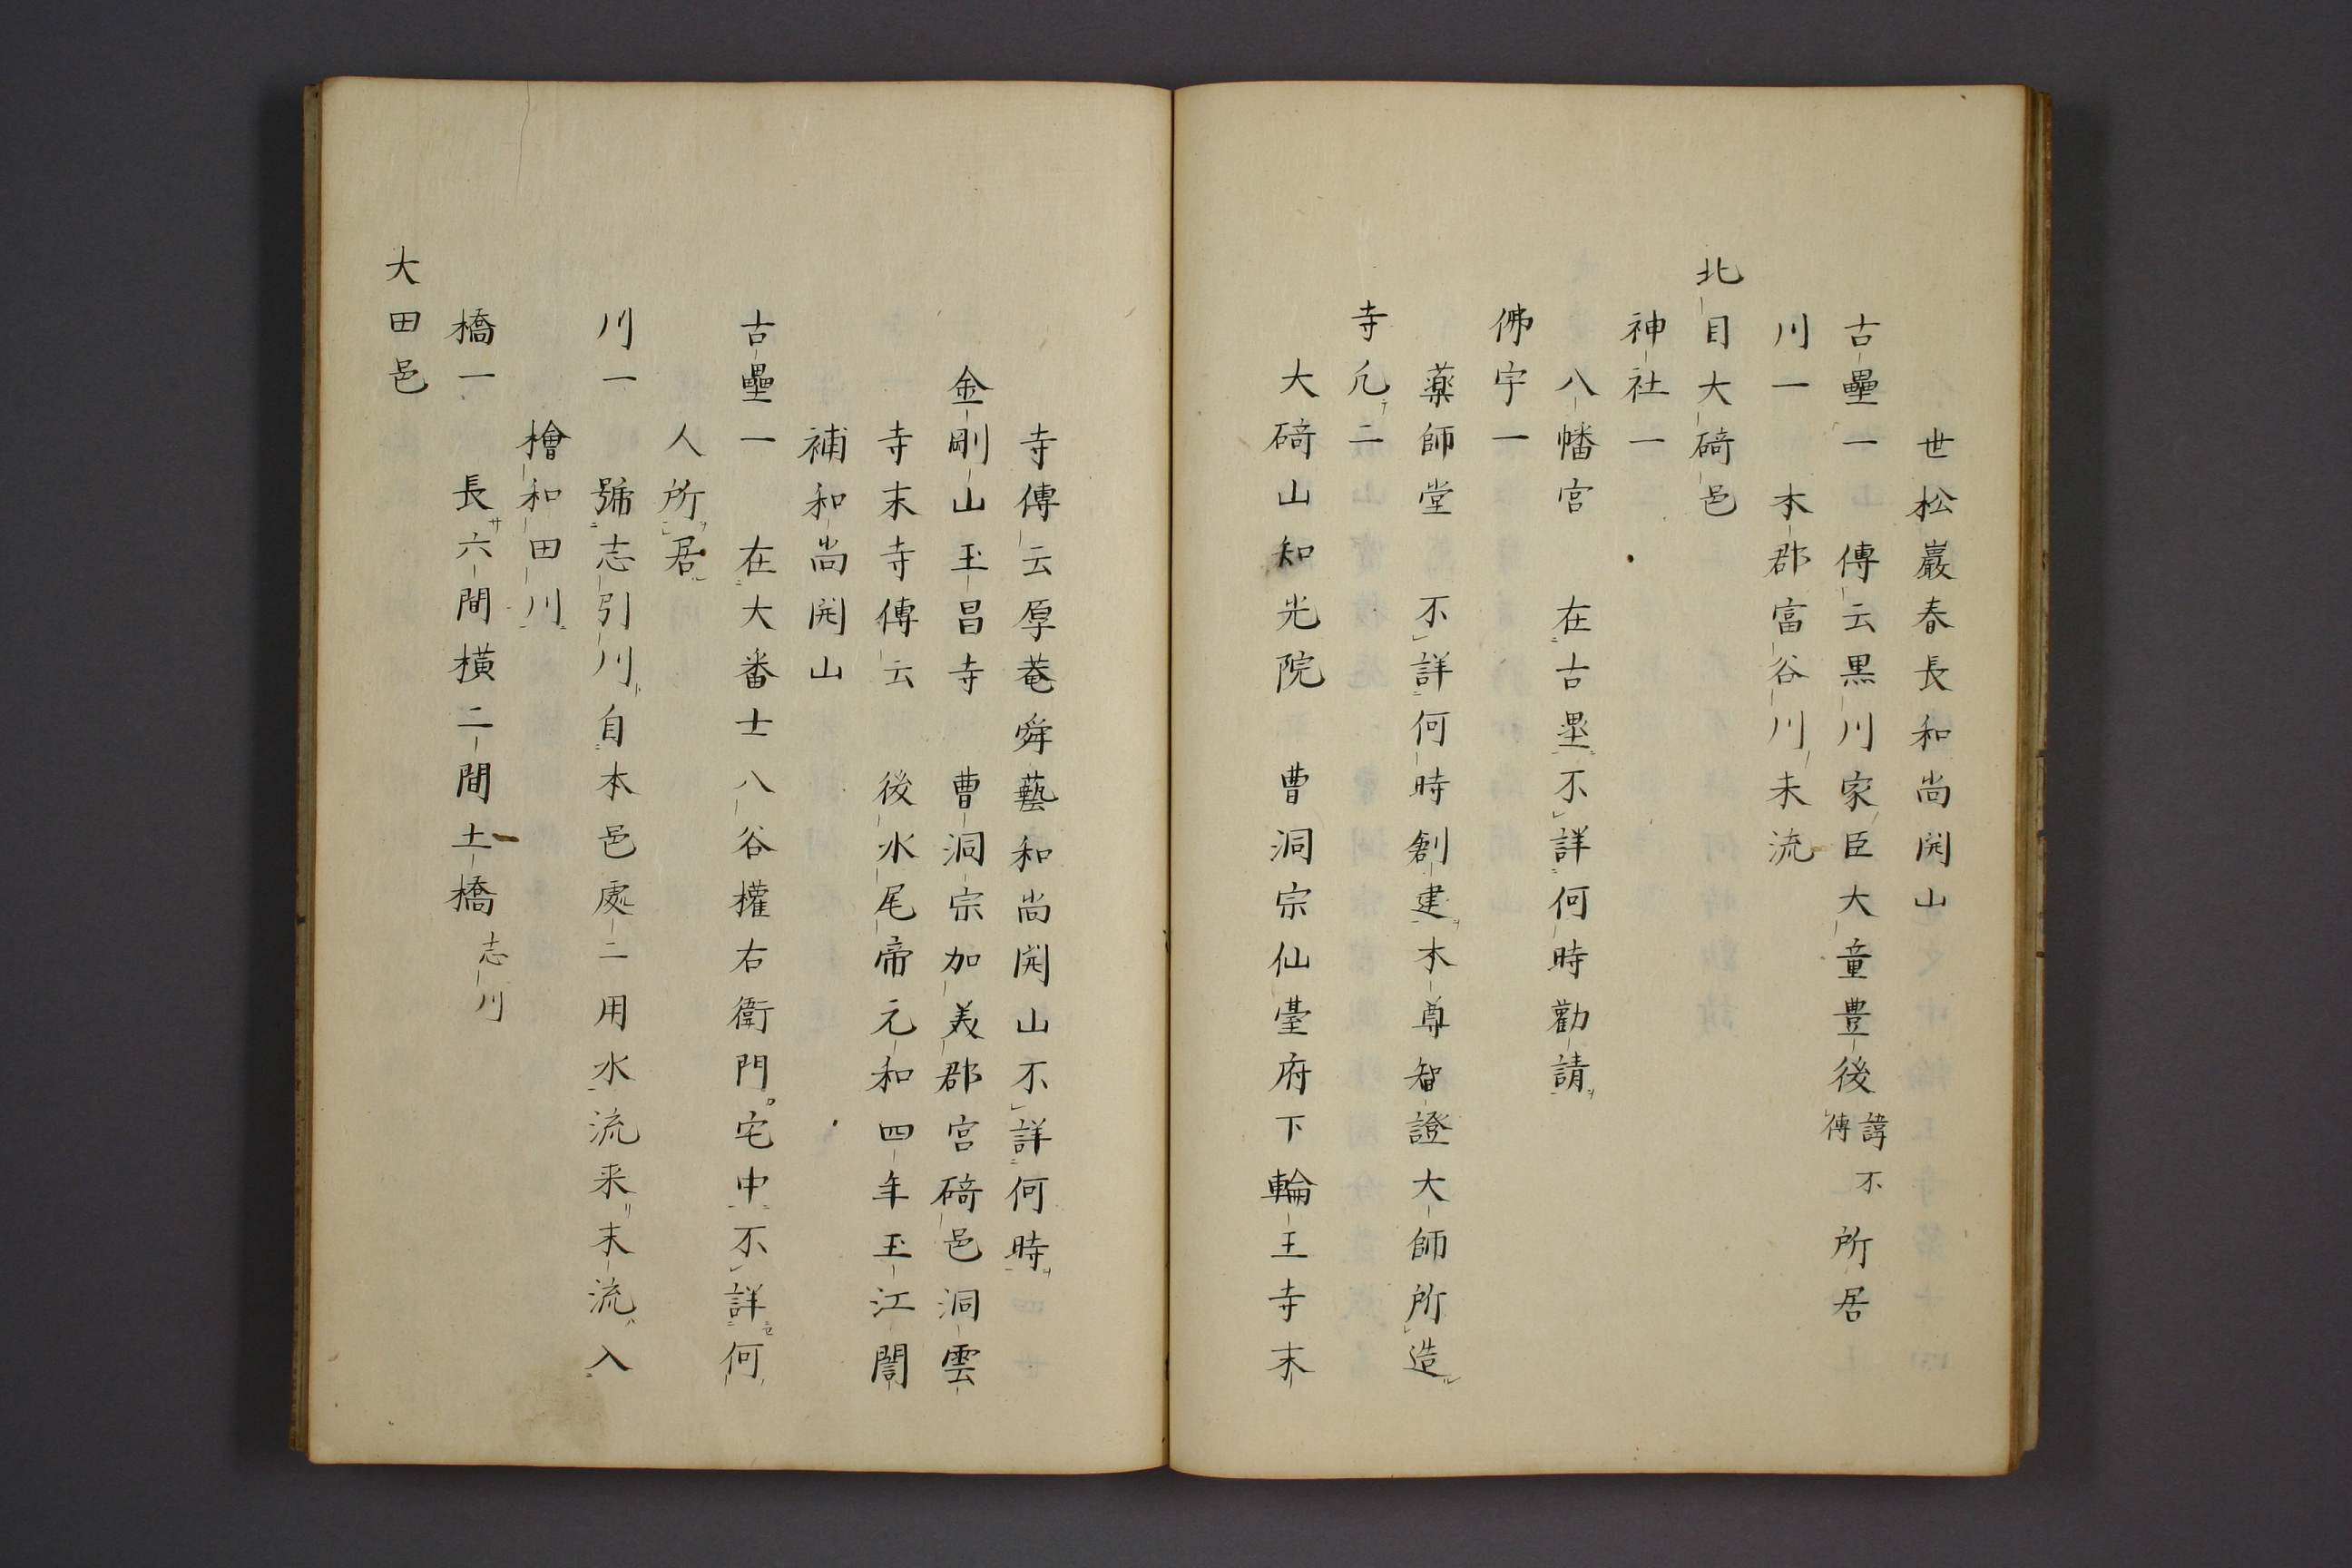 世松巖春長和尚開山
古壘一 傳云黒川家臣大童豊後諱不傳所居
川一 本郡富谷川末流
北目大﨑邑
神社一
八幡宮 在古壘不詳何時勸請
佛宇一
藥師堂 不詳何時創建本尊智證大師所造
寺凢二
大﨑山知光院 曹洞宗仙臺府下輪王寺末
寺傳云厚菴舜藝和尚開山不詳何時
金剛山玉昌寺 曹洞宗加美郡宮﨑邑洞雲
寺末寺傳云 後水尾帝元和四年玉江誾
補和尚開山
古壘一 在大番士八谷權右衛門宅中不詳何
人所居
川一 號志引川自本邑處二用水流来末流入
檜和田川
橋一 長六間横二間土橋志川
大田邑